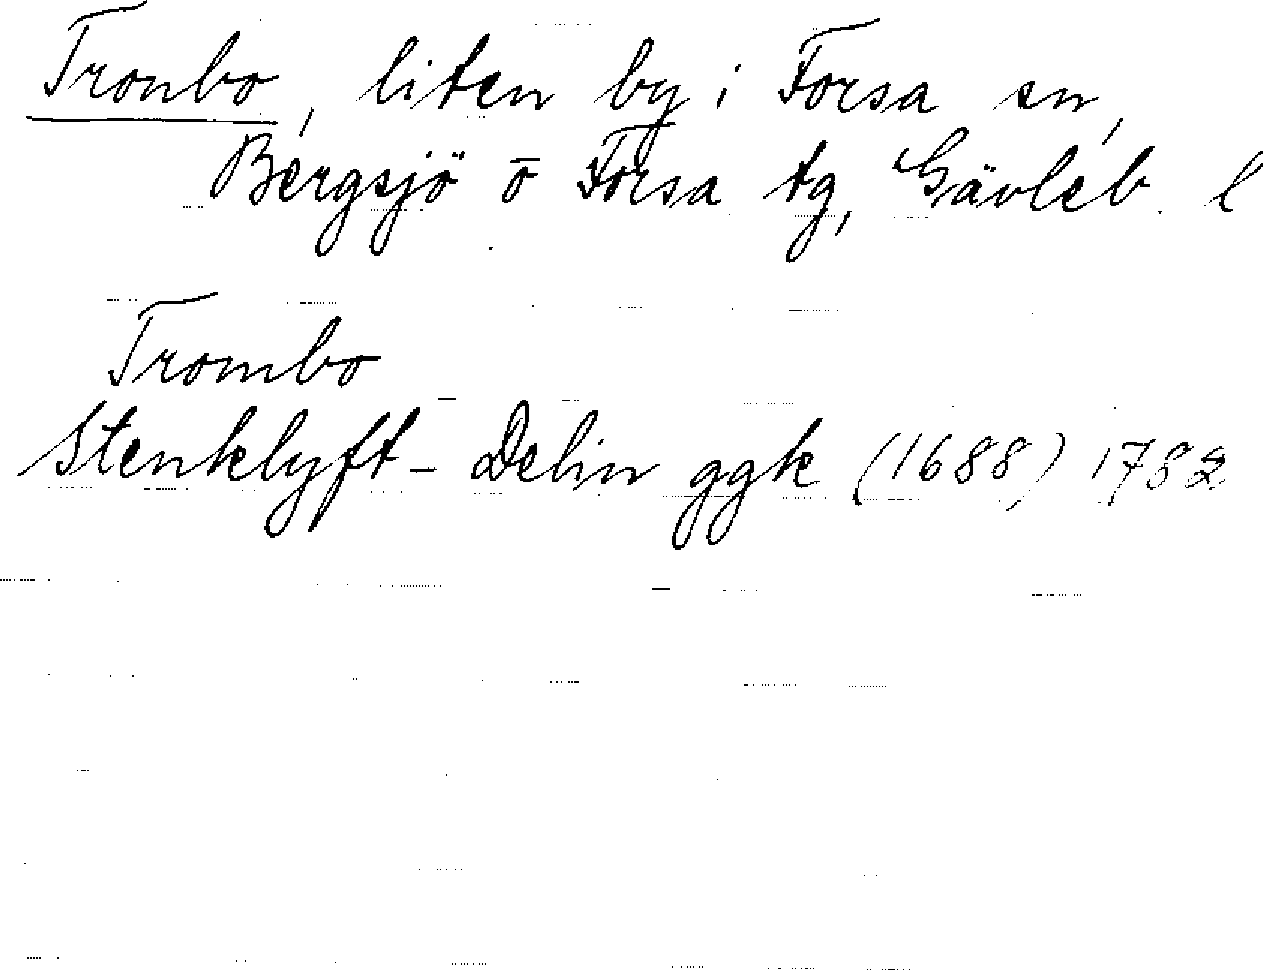 Tronbo, liten by i Forsa sn,
Bergsjö o Forsa tg, Gävleb. l
Trombo
Stenklyft - Delin ggk (1688) 1782